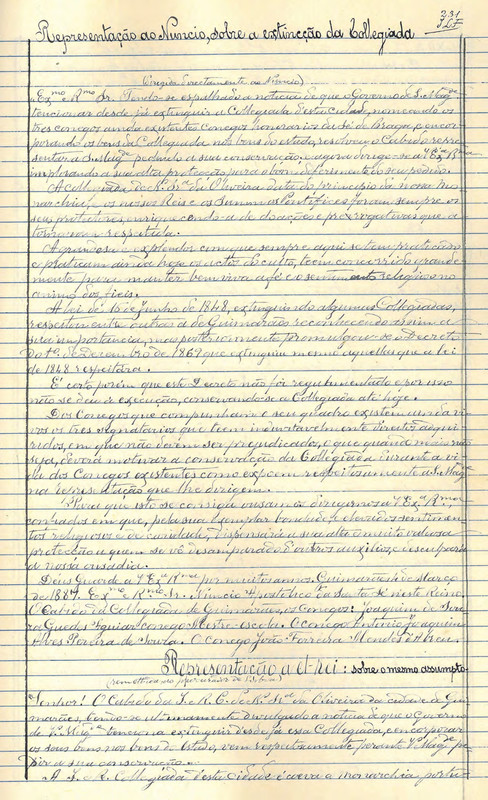 231
Representação ao Nuncio, sobre a extincção da Collegiada
(Dirigida directamente ao Nuncio)
"Ex.mo e R.mo Sr. Tendo-se espalhado a noticia de que o Governo de S. Mag.de
tencionar desde já extinguir a Collegiada d'esta cidade, nomeando os
tres conegos ainda existentes conegos honorarios da Sé de Braga, e encor-
porando os bens da Collegiada nos bens do Estado, resolveu o Cabido repre-
sentar a S. Mag.de pedindo a sua conservação e agora dirige-se a V. Ex.a R.ma
implorando a sua alta protecção para o bom deferimento do seu pedido.
A Collegiada de N. Sr.a da Oliveira data do principio da nossa mo-
narchia, e os nossos Reis e os Summos Pontifices foram sempre os
seus protectores, enriquecendo-a de doações e prerogativas que a
tornaram respeitada.
A grandesa e explendor com que sempre aqui se tem praticado
e praticam ainda hoje os actos do culto, teem concorrido grande-
mente para manter bem viva a fé e o sentimento religioso no
animo dos fieis.
A lei de 16 de Junho de 1848, extinguindo algumas Collegiadas,
respeitou entre outras a de Guimarães reconhecendo assim a
sua importancia, mas posteriormente promulgou-se o Decreto
do 1.º de Dezembro de 1869 que extinguiu mesmo aquellas que a lei
de 1848 respeitára.
É certo porém que este Decreto não foi regulamentado e por isso
não se deu á execução, conservando-se a Collegiada até hoje.
Dos Conegos que compunham o seu quadro existem ainda vi-
vos os tres signatarios que teem indubitavelmente direitos adqui-
ridos, em que não devem ser prejudicados, o que quando mais não
seja, deverá motivar a conservação da Collegiada durante a vi-
da dos Conegos existentes como expoem respeitosamente a S. Mag.de
na representação que lhe dirigem.
Para que isto se consiga ousamos dirigirmos a V. Ex.a R.ma
confiados em que, pela sua exemplar bondade, e elevados sentimen-
tos religiosos e de caridade, dispensará a sua alta e muito valiosa
protecção a quem se vê desamparado d'outros auxilios, e desculpará
a nossa ousadia.
Deus Guarde a V. Ex.a R.ma por muitos annos. Guimarães de Março
de 1887. Ex.mo e R.mo Sr. Nuncio Apostolico da Santa Sé neste Reino.
O Cabido da Collegiada de Guimarães, os Conegos: Joaquim de
Guedes Aguiar, conego Mestre-escola. O Conego Antonio Joaquim
Alves Pereira de Souza. O Conego João Ferreira Mendes d'Abreu.
Representação a el-rei: sobre o mesmo assumpto
(remettida ao procurador de Lisboa)
"Senhor! O Cabido da I. e R. C. de N. Sr.a da Oliveira da cidade de Gui-
marães, tendo-se ultimamente divulgado a noticia de que o Governo
de V. Mag.de tenciona extinguir desde já essa Collegiada, e encorporar
os seus bens nos bens do Estado, vem respeitosamente perante V. Mag.de pe-
dir a sua conservação.
A I. e R. Collegiada d'esta cidade é coeva a monarchia portu-